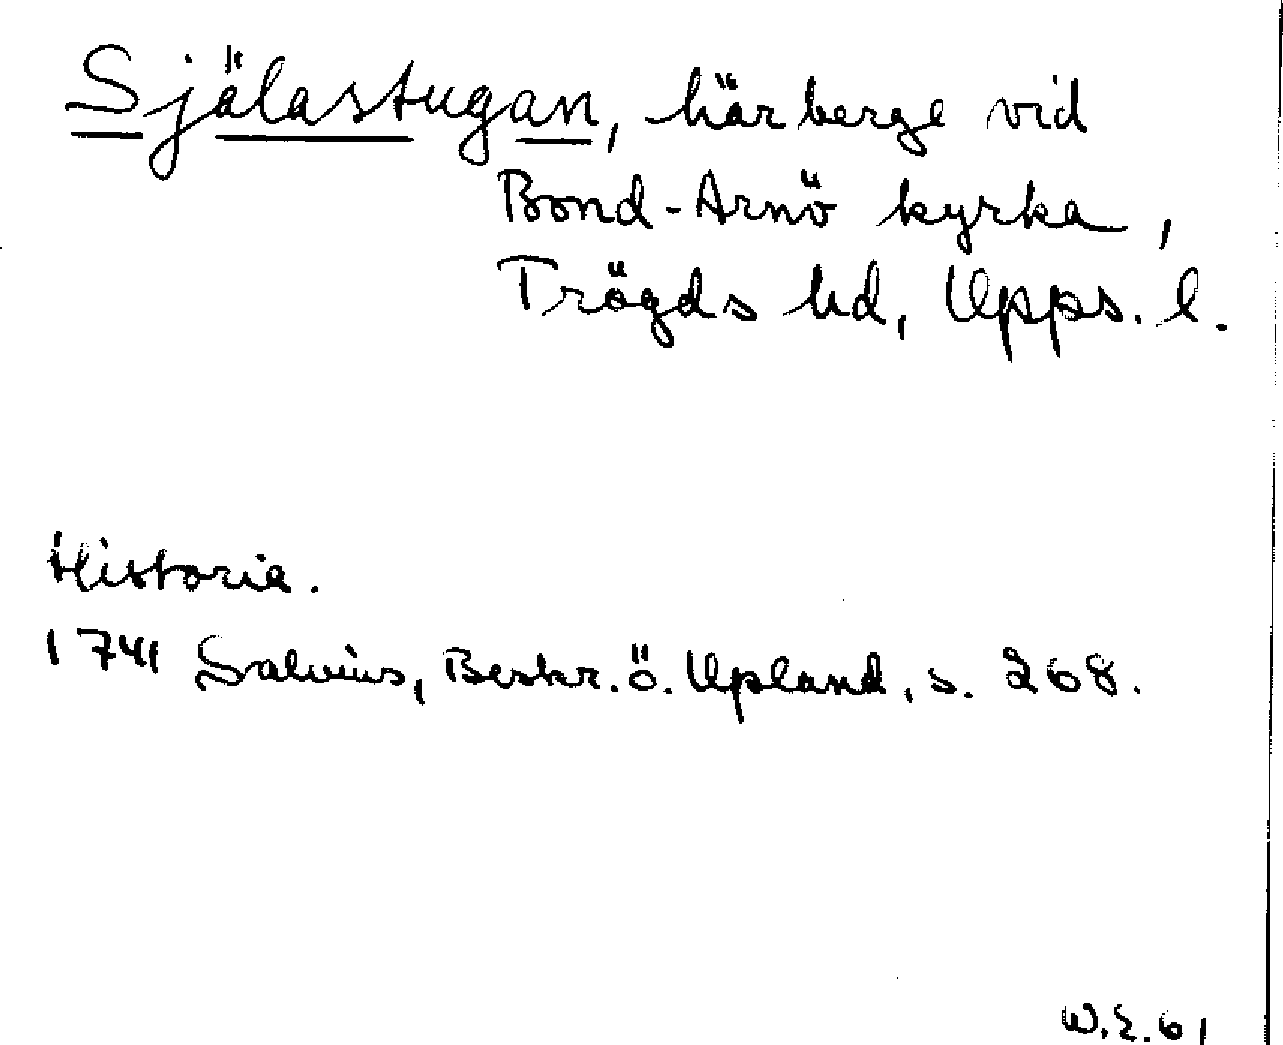 Själastugan, härberge vid
Bond-Arnö kyrka,
Trögds hd, Upps. l.
Historia.
1741 Salvius, Beskr. ö. Upland, s. 268.
W.E. 61